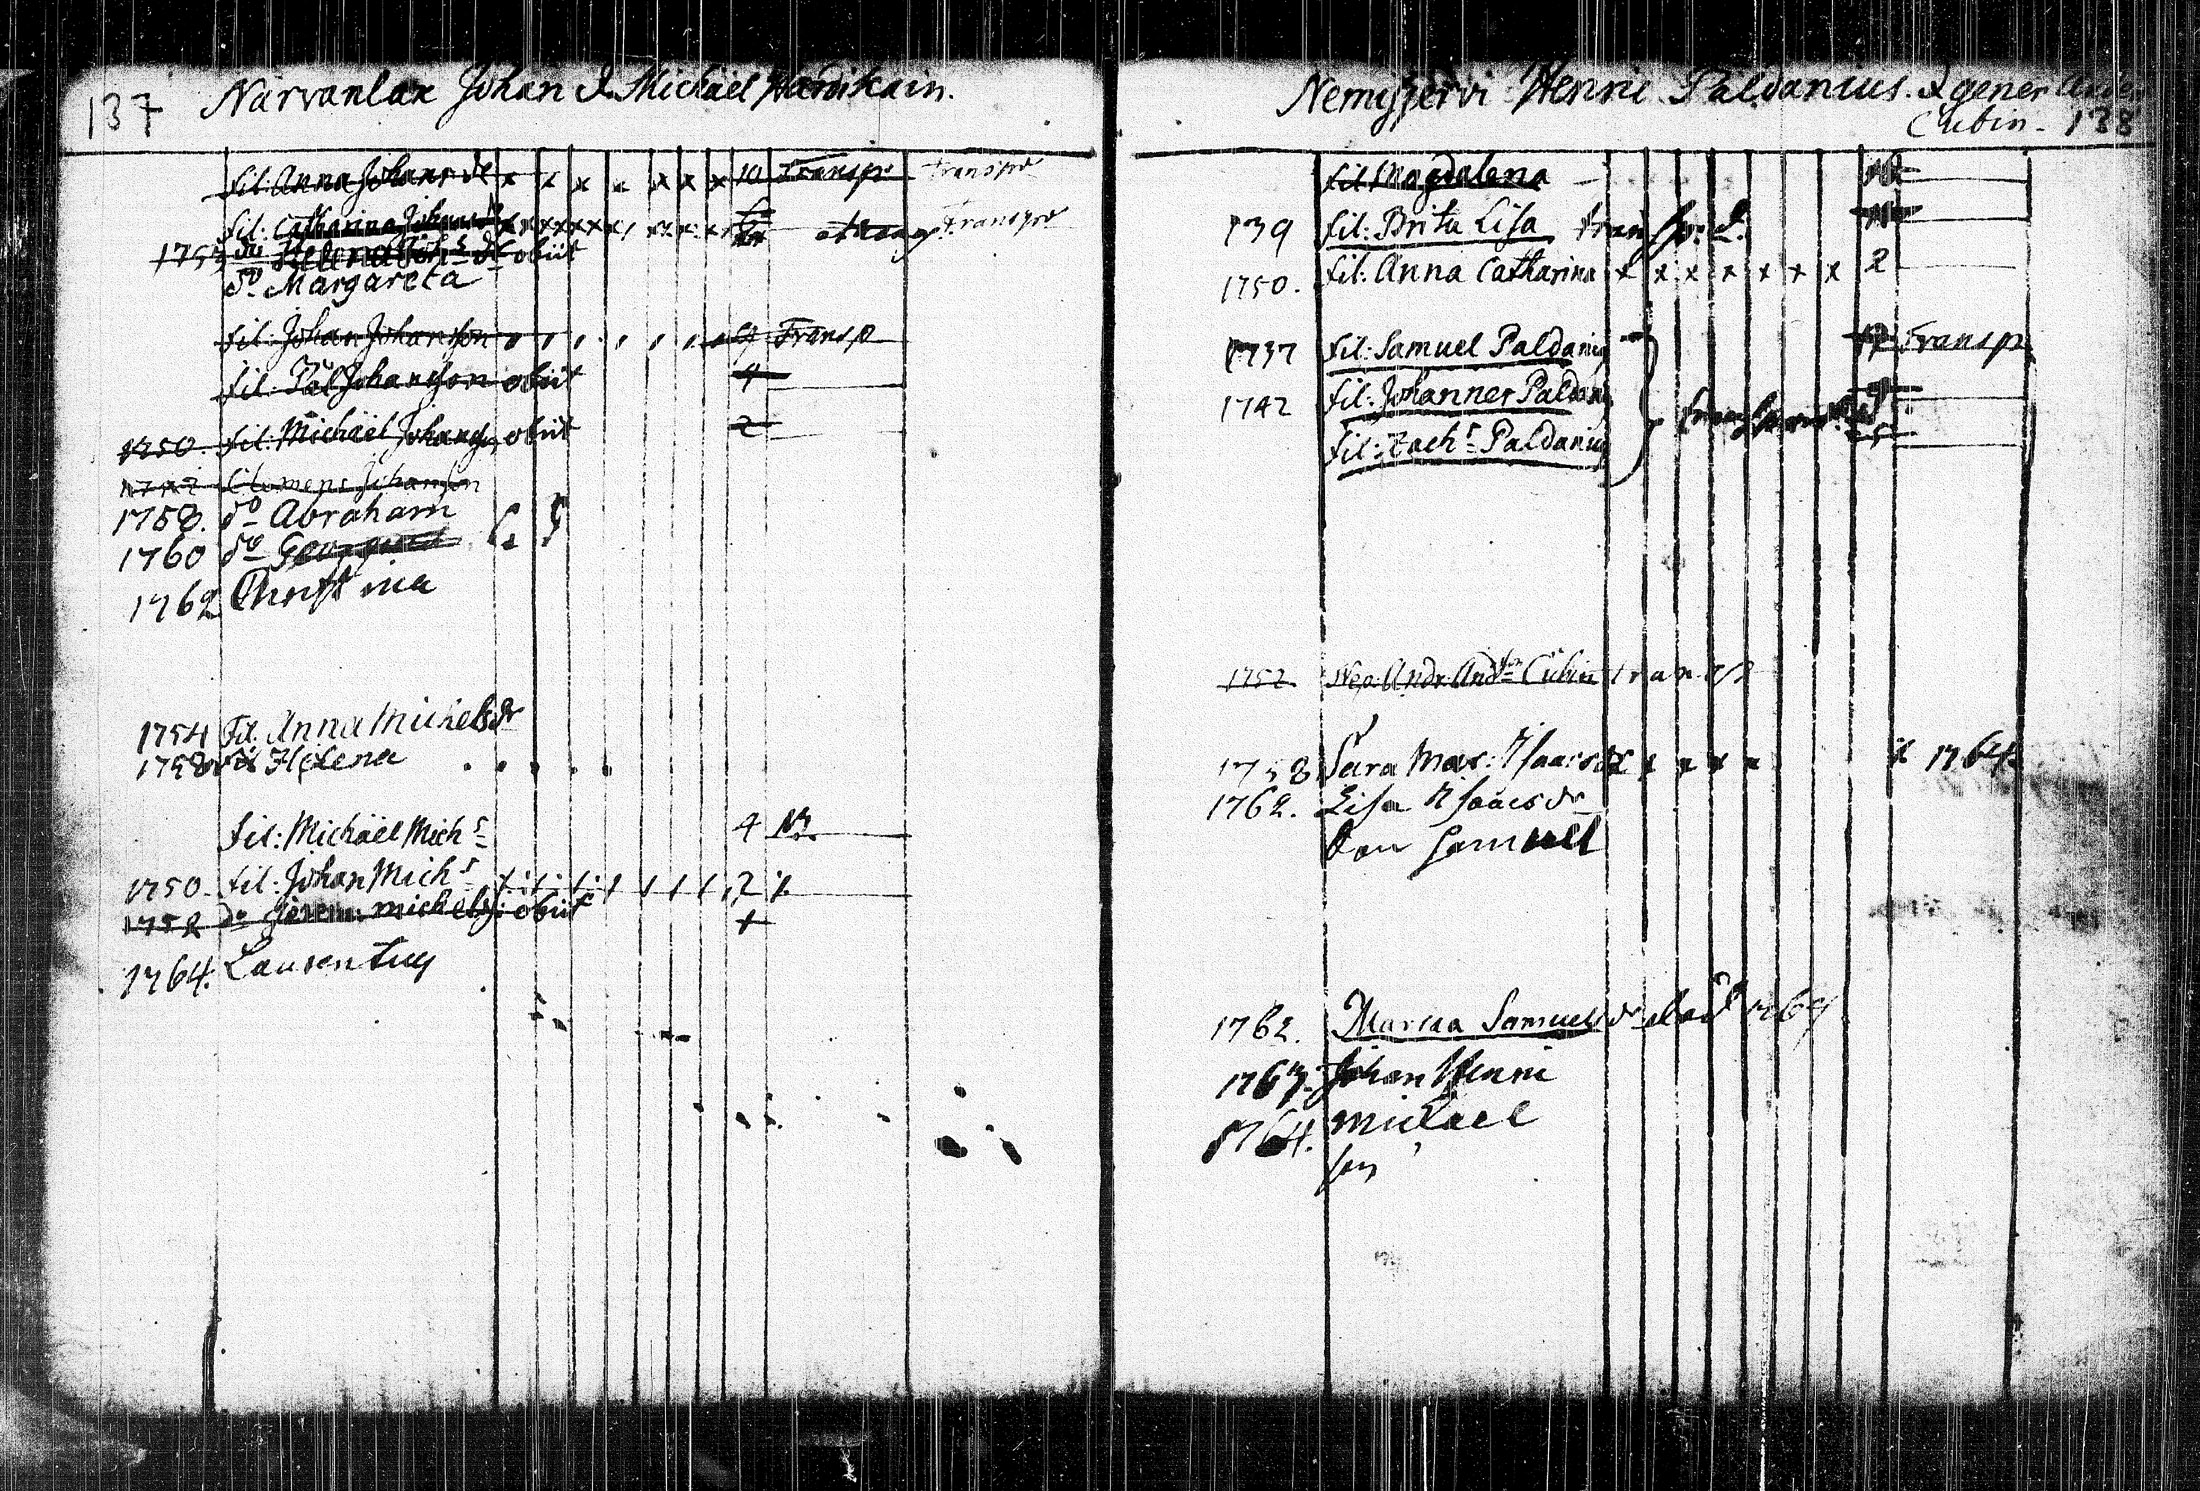 137 Narvanlax Johan & Michael Hardikain.
fil: Anna Johans dr x x x x x x x 10 Transp. transpr
fil: Catharina Johans dr Transpr
do Helena Joh:s dr obiit
do Margareta
fil: Johan Johansson 9 Transp
fil: Pål Johansson obiit 4
1750. fil: Michäel Johans obiit 2
Clemens Johanson
1758. do Abraham
1760 do
1762 Christina
1754 Fil. Anna Michelsdr
1758 Helena
fil: Michäel Mich:s 4
1750. fil: Johan Mich:s 2
1752 do michels: obiit 1
1764. Laurentius
Nemisjervi Henric Paldanius. & gener
Cubin - 138
fil: Magdalena 18
1739 fil: Brita Lisa transp:d.
1750. fil: Anna Catharina x x x x x x x 2
1737 fil: Samuel Paldanius 12 Transp
1742 fil: Johannes Paldani
fil: Zach:s Paldanius 5
1752. Nep: Andr. And:sson Cubin transp
1758 Sara Mar: Isaacsdr x x x x 1764.
1762. Lisa Isaacsdr
Samuel
1762. Maria Samuelsdr död 1764
1763. Johan Henric
1764. Michael